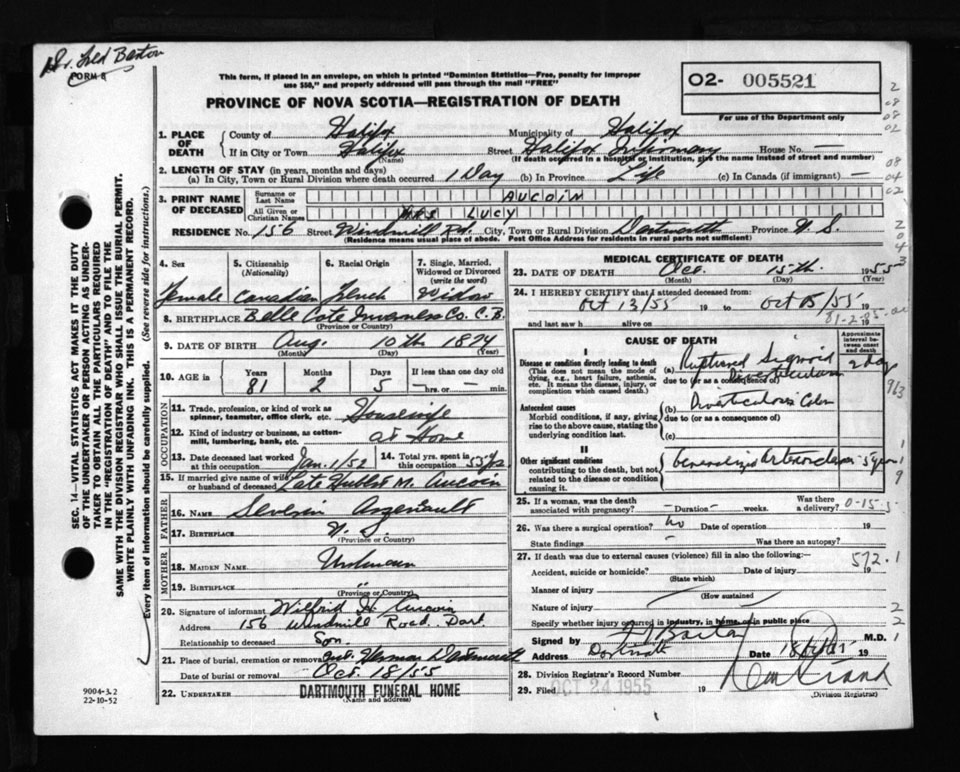 Dr. Fred Barton
FORM 8
This form, if placed in an envelope, on which is printed "Dominion Statistics—Free, penalty for improper
use $50," and properly addressed will pass through the mail "FREE"
PROVINCE OF NOVA SCOTIA—REGISTRATION OF DEATH
O2- 005521
For use of the Department only
1. PLACE OF DEATH
County of Halifax Municipality of Halifax
If in City or Town Halifax (Name) Street Halifax Infirmary House No. —
(If death occurred in a hospital or institution, give the name instead of street and number)
2. LENGTH OF STAY (in years, months and days)
(a) In City, Town or Rural Division where death occurred 1 Day (b) In Province Life (c) In Canada (if immigrant) —
3. PRINT NAME OF DECEASED
Surname or Last Name AUCOIN
All Given or Christian Names MRS LUCY
RESIDENCE No. 156 Street Windmill Rd. City, Town or Rural Division Dartmouth Province N.S.
(Residence means usual place of abode. Post Office Address for residents in rural parts not sufficient)
4. Sex Female
5. Citizenship (Nationality) Canadian
6. Racial Origin French
7. Single, Married, Widowed or Divorced (write the word) Widow
8. BIRTHPLACE Belle Cote Inverness Co. C.B.
(Province or Country)
9. DATE OF BIRTH Aug. 10th 1874
(Month) (Day) (Year)
10. AGE in Years 81 Months 2 Days 5 If less than one day old —hrs. or —min.
OCCUPATION
11. Trade, profession, or kind of work as spinner, teamster, office clerk, etc. Housewife
12. Kind of industry or business, as cotton-mill, lumbering, bank, etc. at Home
13. Date deceased last worked at this occupation Jan. 1/52
14. Total yrs. spent in this occupation 53 yrs.
15. If married give name of wife or husband of deceased Late Hubbert M. Aucoin
FATHER
16. NAME Severin Arsenault
17. BIRTHPLACE N.S.
(Province or Country)
MOTHER
18. MAIDEN NAME Unknown
19. BIRTHPLACE "
(Province or Country)
20. Signature of informant Wilfrid Aucoin
Address 156 Windmill Road. Dart.
Relationship to deceased Son.
21. Place of burial, cremation or removal Dartmouth
Date of burial or removal Oct. 18/55
22. UNDERTAKER DARTMOUTH FUNERAL HOME
(Name and address)
MEDICAL CERTIFICATE OF DEATH
23. DATE OF DEATH Oct. 15th. 1955
(Month) (Day)
24. I HEREBY CERTIFY that I attended deceased from:
Oct 13/55 19 to Oct 15/55 19
and last saw h alive on 19
CAUSE OF DEATH
Approximate interval between onset and death
I
Disease or condition directly leading to death
(This does not mean the mode of dying, e.g., heart failure, asthenia, etc. It means the disease, injury, or complication which caused death.)
(a) Ruptured Sigmoid Diverticulum 2 day
due to (or as a consequence of)
Antecedent causes
Morbid conditions, if any, giving rise to the above cause, stating the underlying condition last.
(b) Colon
due to (or as a consequence of)
(c)
II
Other significant conditions
contributing to the death, but not related to the disease or condition causing it.
Generalized 5 years
25. If a woman, was the death associated with pregnancy? —Duration— weeks. Was there a delivery?
26. Was there a surgical operation? no Date of operation 19
State findings — Was there an autopsy?
27. If death was due to external causes (violence) fill in also the following:—
Accident, suicide or homicide? Date of injury 19
(State which)
Manner of injury
(How sustained)
Nature of injury
Specify whether injury occurred in industry, in home, or in public place
Signed by M.D.
Address Dartmouth Date 19
28. Division Registrar's Record Number
29. Filed OCT 24 1955 19
(Division Registrar)
572.1
SEC. 14—VITAL STATISTICS ACT MAKES IT THE DUTY
OF THE UNDERTAKER OR PERSON ACTING AS UNDER-
TAKER TO OBTAIN ALL THE PARTICULARS REQUIRED
IN THE "REGISTRATION OF DEATH" AND TO FILE THE
SAME WITH THE DIVISION REGISTRAR WHO SHALL ISSUE THE BURIAL PERMIT.
WRITE PLAINLY WITH UNFADING INK. THIS IS A PERMANENT RECORD.
Every item of information should be carefully supplied. (See reverse side for instructions.)
9004-3.2
22-10-52